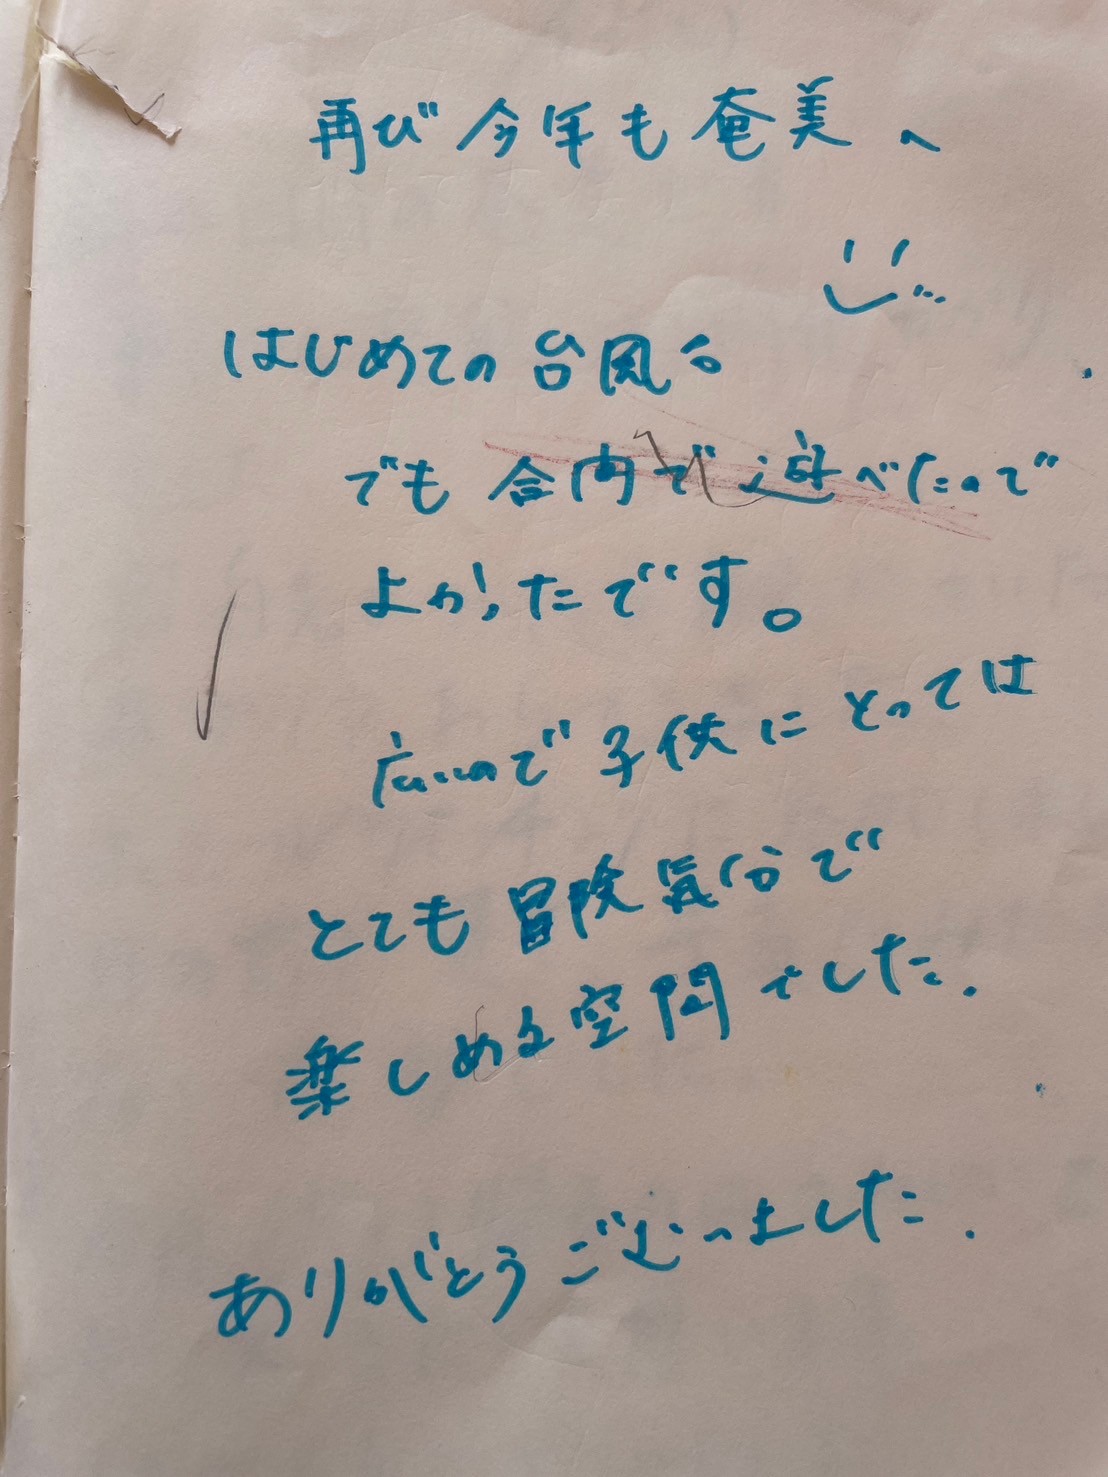 再び今年も奄美へ
はじめての台風。
でも 舎内で遊べたので
よかったです。
広いので子供にとっては
とても冒険気分で
楽しめる空間でした.
ありがとうございました.